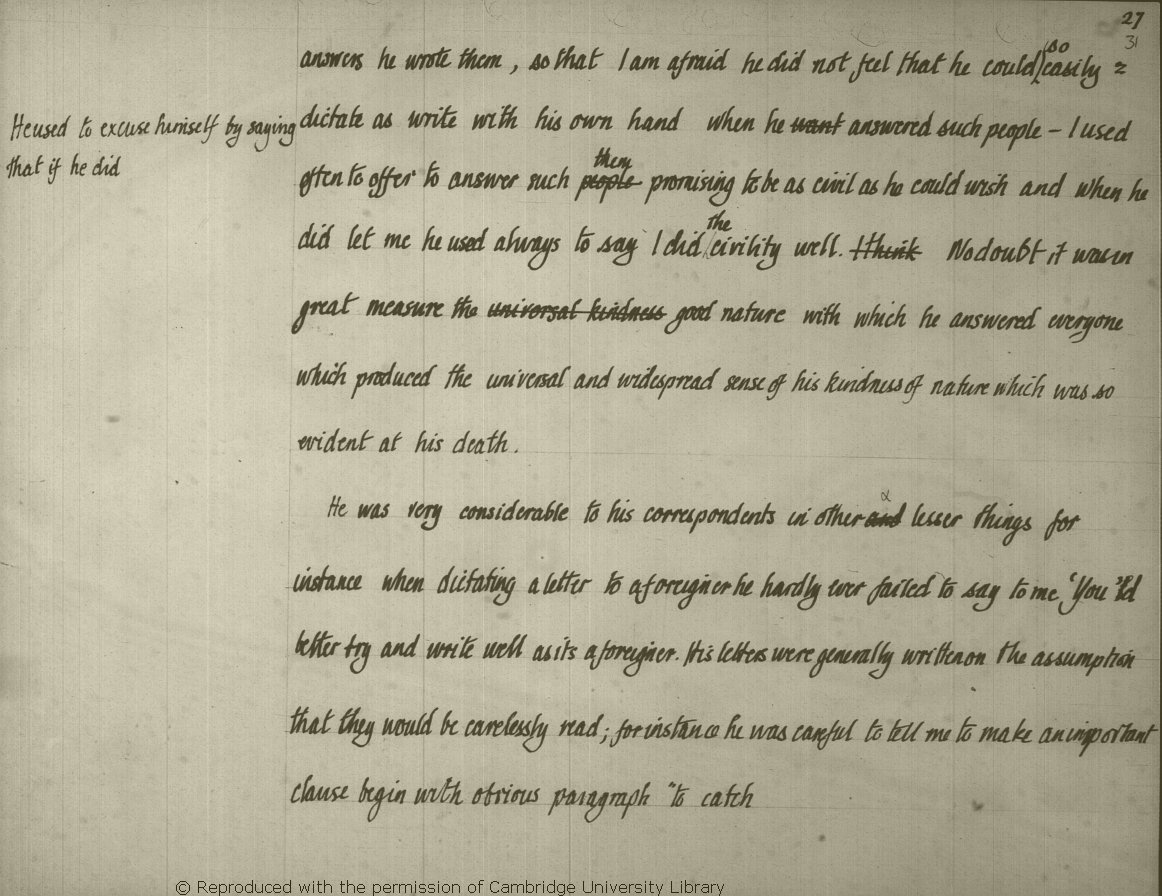 27
31
so
answers he wrote them, so that I am afraid he did not feel that he could easily =
He used to excuse himself by saying
dictate as write with his own hand when he want answered such people – I used
that if he did
them
often to offer to answer such people promising to be as civil as he could wish and when he
the
did let me he used always to say I did civility well. I think No doubt it was in
great measure the universal kindness good nature with which he answered everyone
which produced the universal and widespread sense of his kindness of nature which was so
evident at his death.
He was very considerable to his correspondents in other and lesser things for
instance when dictating a letter to a foreigner he hardly ever failed to say to me 'You'ld
better try and write well as its a foreigner. His letters were generally written on the assumption
that they would be carelessly read; for instance he was careful to tell me to make an important
clause begin with obvious paragraph "to catch
© Reproduced with the permission of Cambridge University Library